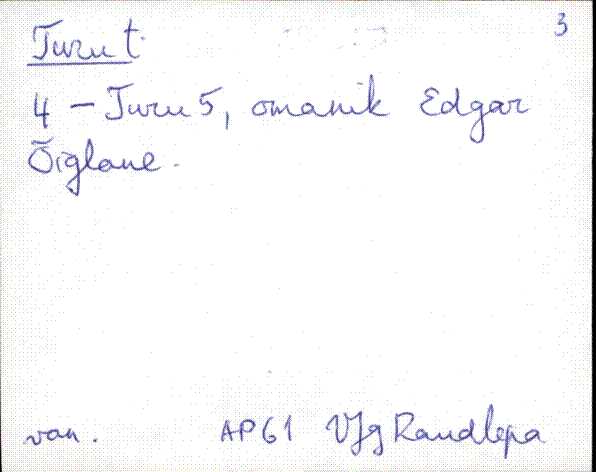 3
Turu t.
4 – Turu 5, omanik Edgar
Õiglane.
van. AP61 VJg Randlepa